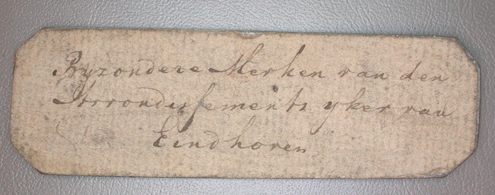 Byzondere Merken van den
Arrondissements yker van
Eindhoven